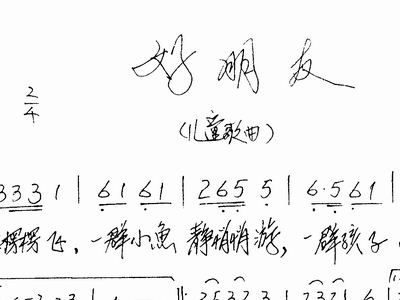 好朋友
2/4
(儿童歌曲)
3331 | 61 61 | 265 5 | 6·561 |
楞楞飞，一群小鱼静悄悄游，一群孩子